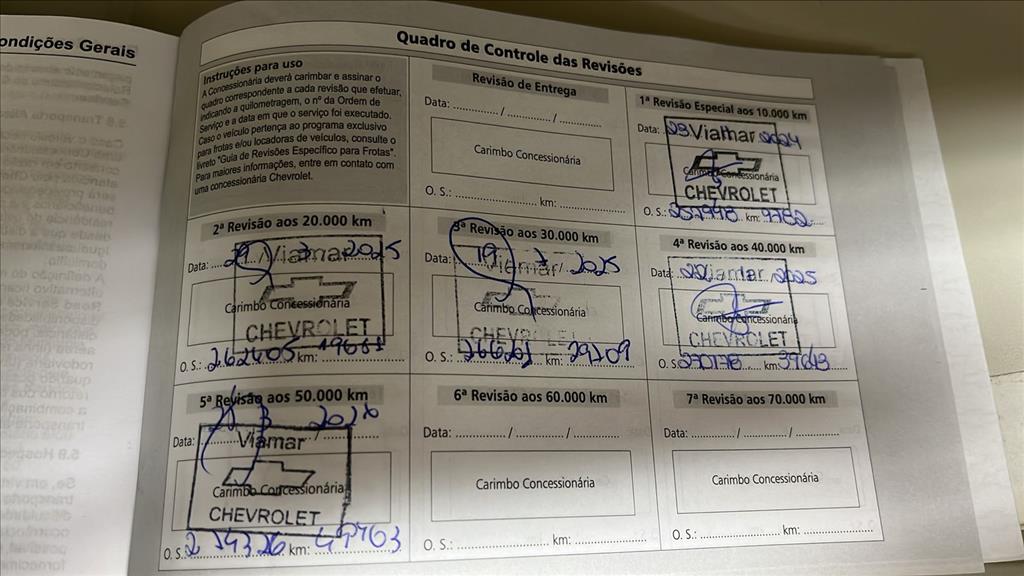 ondições Gerais
Quadro de Controle das Revisões
Instruções para uso
A Concessionária deverá carimbar e assinar o
quadro correspondente a cada revisão que efetuar,
indicando a quilometragem, o nº da Ordem de
Serviço e a data em que o serviço foi executado.
Caso o veículo pertença ao programa exclusivo
para frotas e/ou locadoras de veículos, consulte o
livreto "Guia de Revisões Específico para Frotas".
Para maiores informações, entre em contato com
uma concessionária Chevrolet.
Revisão de Entrega
Data: ............ / ............ / ............
Carimbo Concessionária
O. S.: ............ km: ............
1ª Revisão Especial aos 10.000 km
Data: 23 Viamar 2024
Carimbo Concessionária
CHEVROLET
O. S.: km: 9782
2ª Revisão aos 20.000 km
Data: 29 Viamar 2025
Carimbo Concessionária
CHEVROLET
O. S.: 262405 km:
3ª Revisão aos 30.000 km
Data: 19 Viamar 7 2025
CHEVROLET
O. S.: km: 29209
4ª Revisão aos 40.000 km
Data: Viamar 2025
Carimbo Concessionária
CHEVROLET
O. S.: 270178 km:
5ª Revisão aos 50.000 km
3
Data: Viamar
Carimbo Concessionária
CHEVROLET
O. S.: km:
6ª Revisão aos 60.000 km
Data: ............ / ............ / ............
Carimbo Concessionária
O. S.: ............ km: ............
7ª Revisão aos 70.000 km
Data: ............ / ............ / ............
Carimbo Concessionária
O. S.: ............ km: ............